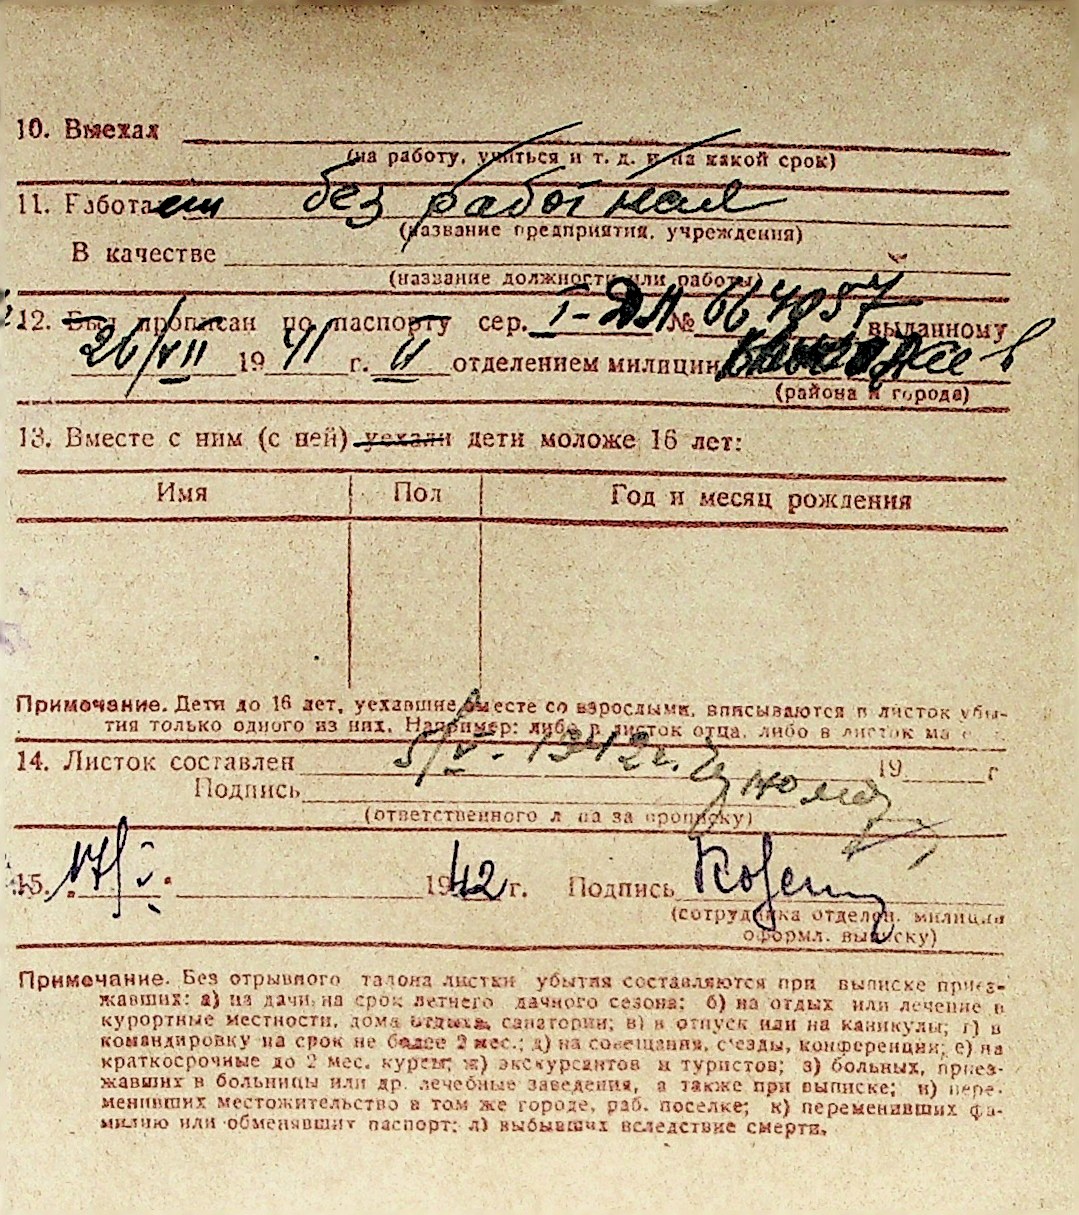 10. Выехал
(на работу, учиться и т. д. и на какой срок)
11. Работает без работная
(название предприятия, учреждения)
В качестве
(название должности или работы)
12. Был прописан по паспорту сер. I-ДЛ № 664057 выданному
26/VII 1941 г. II отделением милиции
(района и города)
13. Вместе с ним (с ней) уехали дети моложе 16 лет:
Имя Пол Год и месяц рождения
Примечание. Дети до 16 лет, уехавшие вместе со взрослыми, вписываются в листок убы-
тия только одного из них. Например: либо в листок отца, либо в листок
14. Листок составлен 5/V - 1942 г. 19 г
Подпись
(ответственного лица за прописку)
15. 17/V 1942 г. Подпись
(сотрудника отделен. милиции
оформл. выписку)
Примечание. Без отрывного талона листки убытия составляются при выписке приез-
жавших: а) на дачи, на срок летнего дачного сезона; б) на отдых или лечение в
курортные местности, дома отдыха, санатории; в) в отпуск или на каникулы; г) в
командировку на срок не более 2 мес.; д) на совещания, съезды, конференции; е) на
краткосрочные до 2 мес. курсы; ж) экскурсантов и туристов; з) больных, приез-
жавших в больницы или др. лечебные заведения, а также при выписке; и) пере-
менивших местожительство в том же городе, раб. поселке; к) переменивших фа-
милию или обменявших паспорт; л) выбывших вследствие смерти.